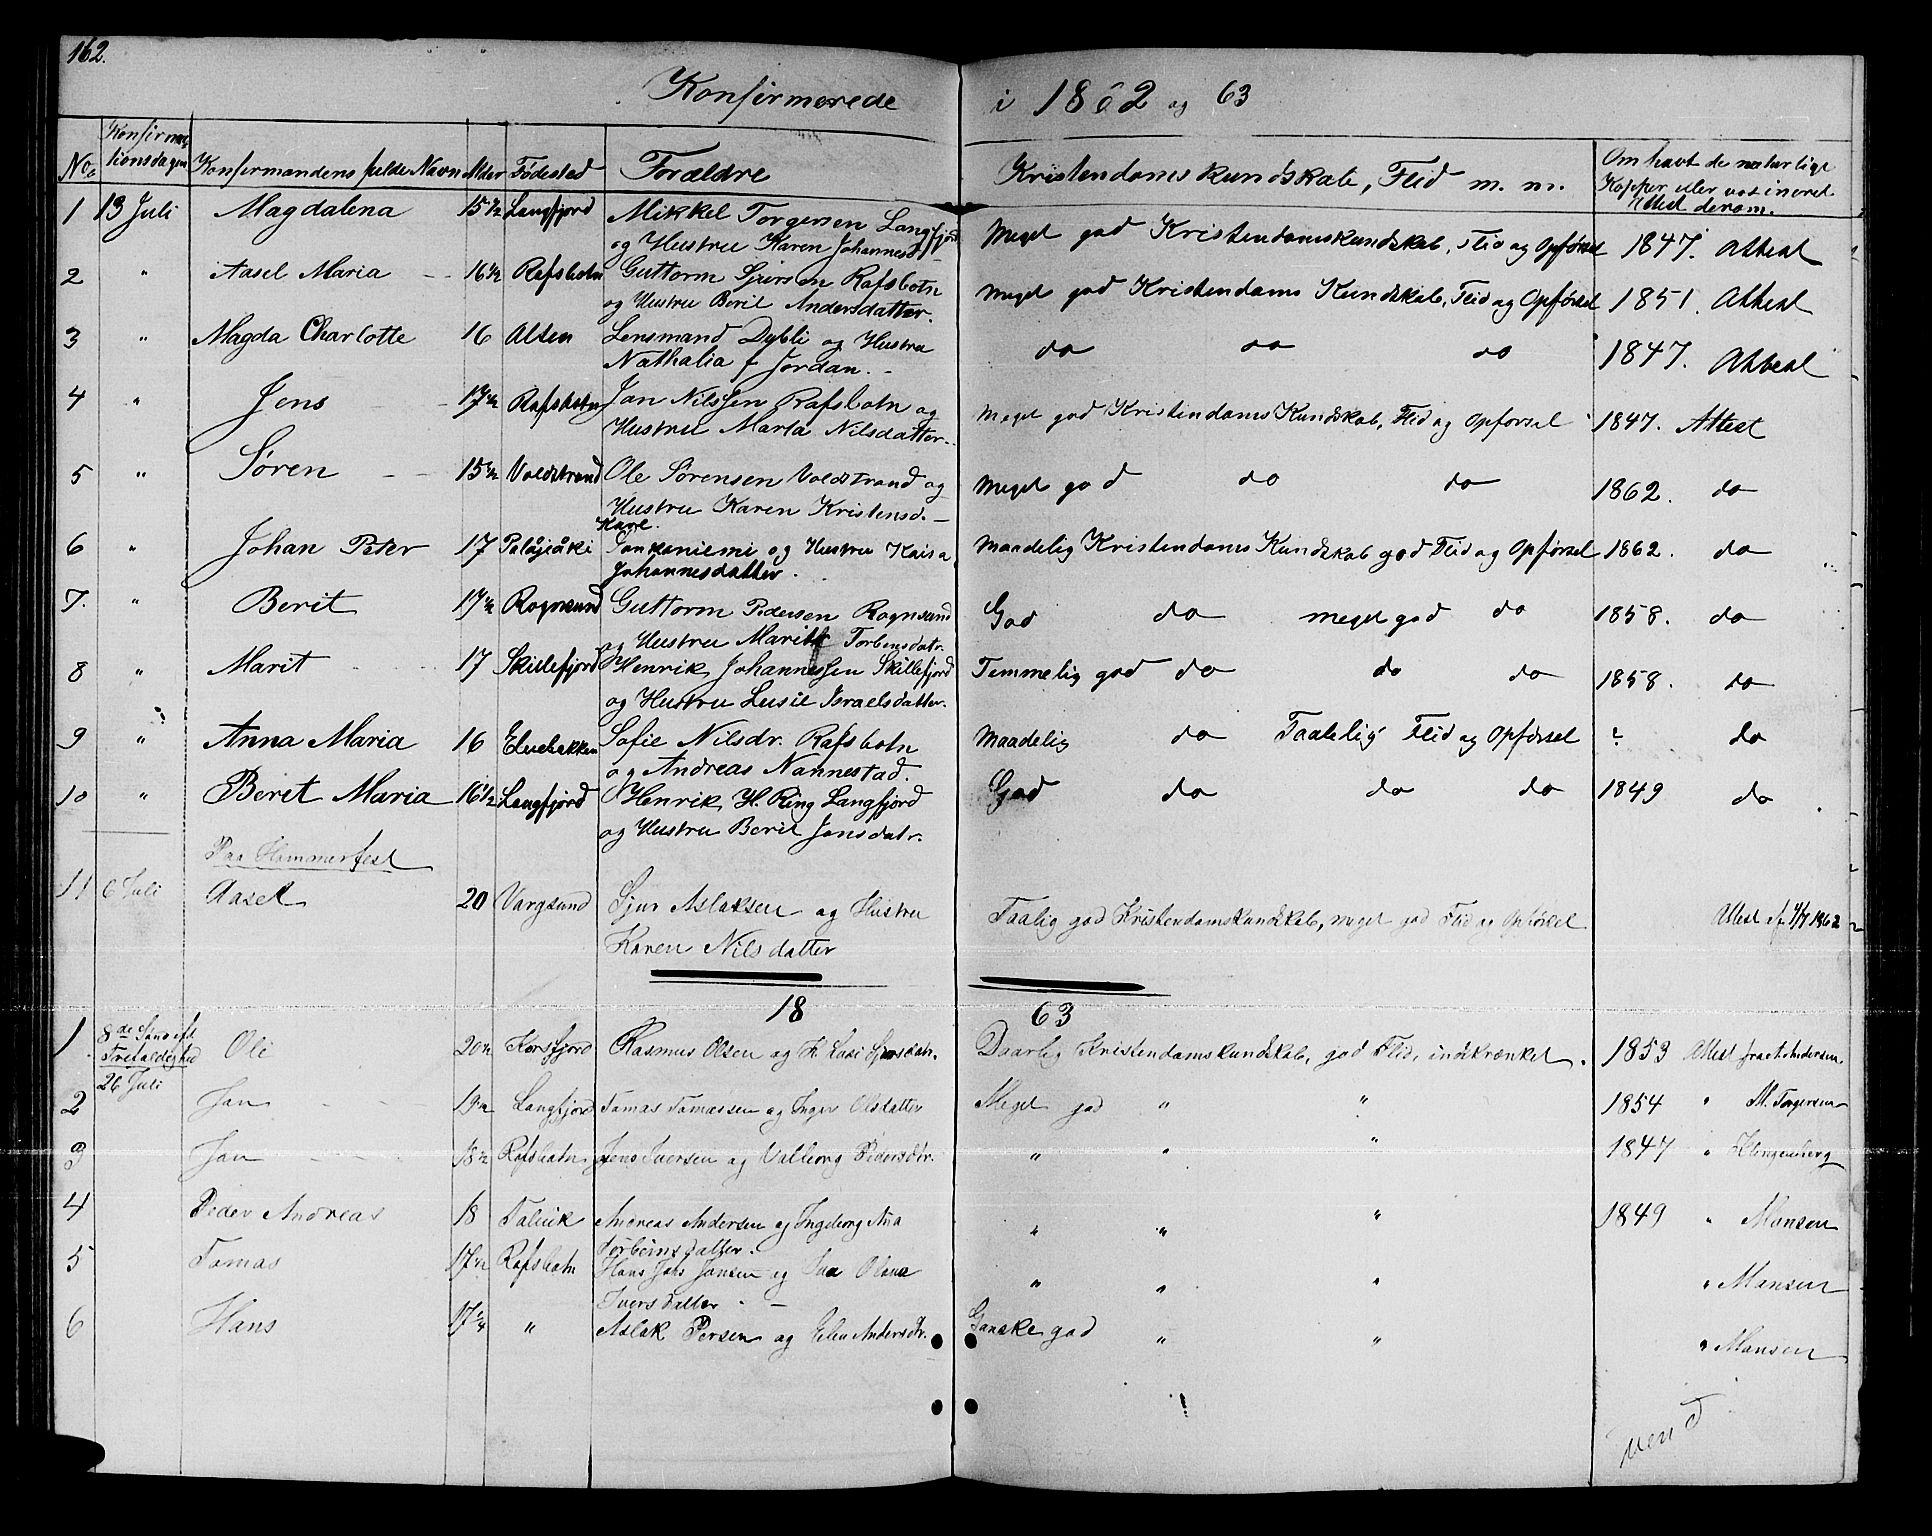 162.
Konfirmerede i 1862 og 63
No. Konfirmationsdagen Konfirmandens fulde Navn Alder Fødested Forældre Kristendomskundskab, Flid m. m. Om havt de naturlige
Kopper eller vacsineret
Attest derom.
1 13 Juli Magdalena 15½ Langfjord Mikkel Torgersen Langfjord Meget god Kristendomskundskab, Flid og Opførsel 1847. Attest
og Hustru Karen Johannesd.
2 " Aasel Maria 16½ Rafsbotn Guttorm Sjursen Rafsbotn Meget god Kristendoms Kundskab, Flid og Opførsel 1851. Attest
og Hustru Berit Andersdatter.
3 " Magda Charlotte 16 Alten Lensmand Dybli og Hustru do do do 1847. Attest
Nathalia f Jordan.
4 " Jens 17½ Rafsbotn Jon Nilssen Rafsbotn og Meget god Kristendoms Kundskab, Flid og Opførsel 1847. Attest
Hustru Marta Nilsdatter.
5 " Søren 15½ Voldstrand Ole Sørensen Voldstrand og Meget god do do 1862. do
Hustru Karen Kristensd.
6 " Johan Peter 17 Palåjeåki Tonkaniemi og Hustru Kaisa Maadelig Kristendoms Kundskab god Flid og Opførsel 1862. do
Johannesdatter.
7. " Berit 17½ Rognsund Guttorm Pedersen Rognsund God do meget god do 1858. do
og Hustru Marit Torbensdatr.
8 " Marit 17 Skillefjord Henrik Johannessen Skillefjord Temmelig god do do do 1858. do
og Hustru Lusie Israelsdatter.
9 " Anna Maria 16 Elvebakken Sofie Nilsdr. Rafsbotn Maadelig do Taalelig Flid og Opførsel ? do
og Andreas Nannestad.
10 " Berit Maria 16½ Langfjord Henrik H. Ring Langfjord God do do do 1849 do
og Hustru Berit Jonsdatr.
Paa Hammerfest
11 6 Juli Aasel 20 Vargsund Sjur Aslaksen og Hustru Taalig god Kristendomskundskab, meget god Flid og Opførsel Attest af 1862
Karen Nilsdatter
18 63
1 8de Sønd. eft.
Trefoldighed Ole 20½ Korsfjord Rasmus Olsen og H. Lusi Sjursdatr. Daarlig Kristendomskundskab, god Flid, indskrænket. 1853 Attest fra A. Andersen
26 Juli
2 Jon 19½ Langfjord Tomas Tomassen og Inger Olsdatter Meget god " " 1854 " M. Torgersen
3 Jon 18½ Rafsbotn Jens Iversen og Valborg Pedersdtr. " " " 1847 " Klingenberg
4 Peder Andreas 18 Talvik Andreas Andersen og Ingeborg Ana " " " 1849 " Monsen
Torbeinsdatter.
5 Tomas 17½ Rafsbotn Hans Jons Jonsen og Ana Olava " " " " Monsen
Iversdatter
6 Hans 17¼ " Aslak Persen og Elen Andersdr. Ganske god " " " Monsen
Vend